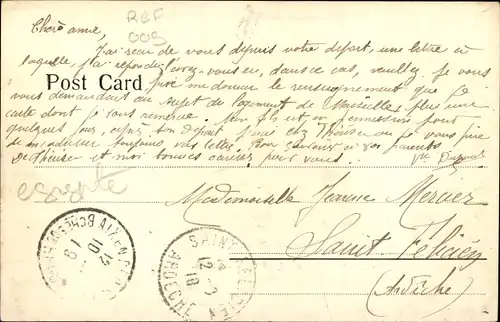 Chère amie,
REF
009
J'ai reçu de vous depuis votre départ, une lettre à
laquelle j'ai répondu, l'avez-vous eu, dans ce cas, veuillez je vous
Post Card
me donner le renseignement que je
vous demandais au sujet du logement de Marseille, plus une
carte dont je vous remercie. Mon fils est en permission pour
quelques jours, après son départ j'irai chez Thérèse ou je vous prie
de m'adresser toujours vos lettres. Bon souvenir à vos parents
de Thérèse et moi bonnes caresses pour vous. Vve
Egypte
Mademoiselle Jeanne Mercier
Saint Félicien
(Ardèche)
AIX-EN-
BOUCHES-DU-RHONE
12
10
19
SAINT-FELICIEN
12-3
19
ARDECHE